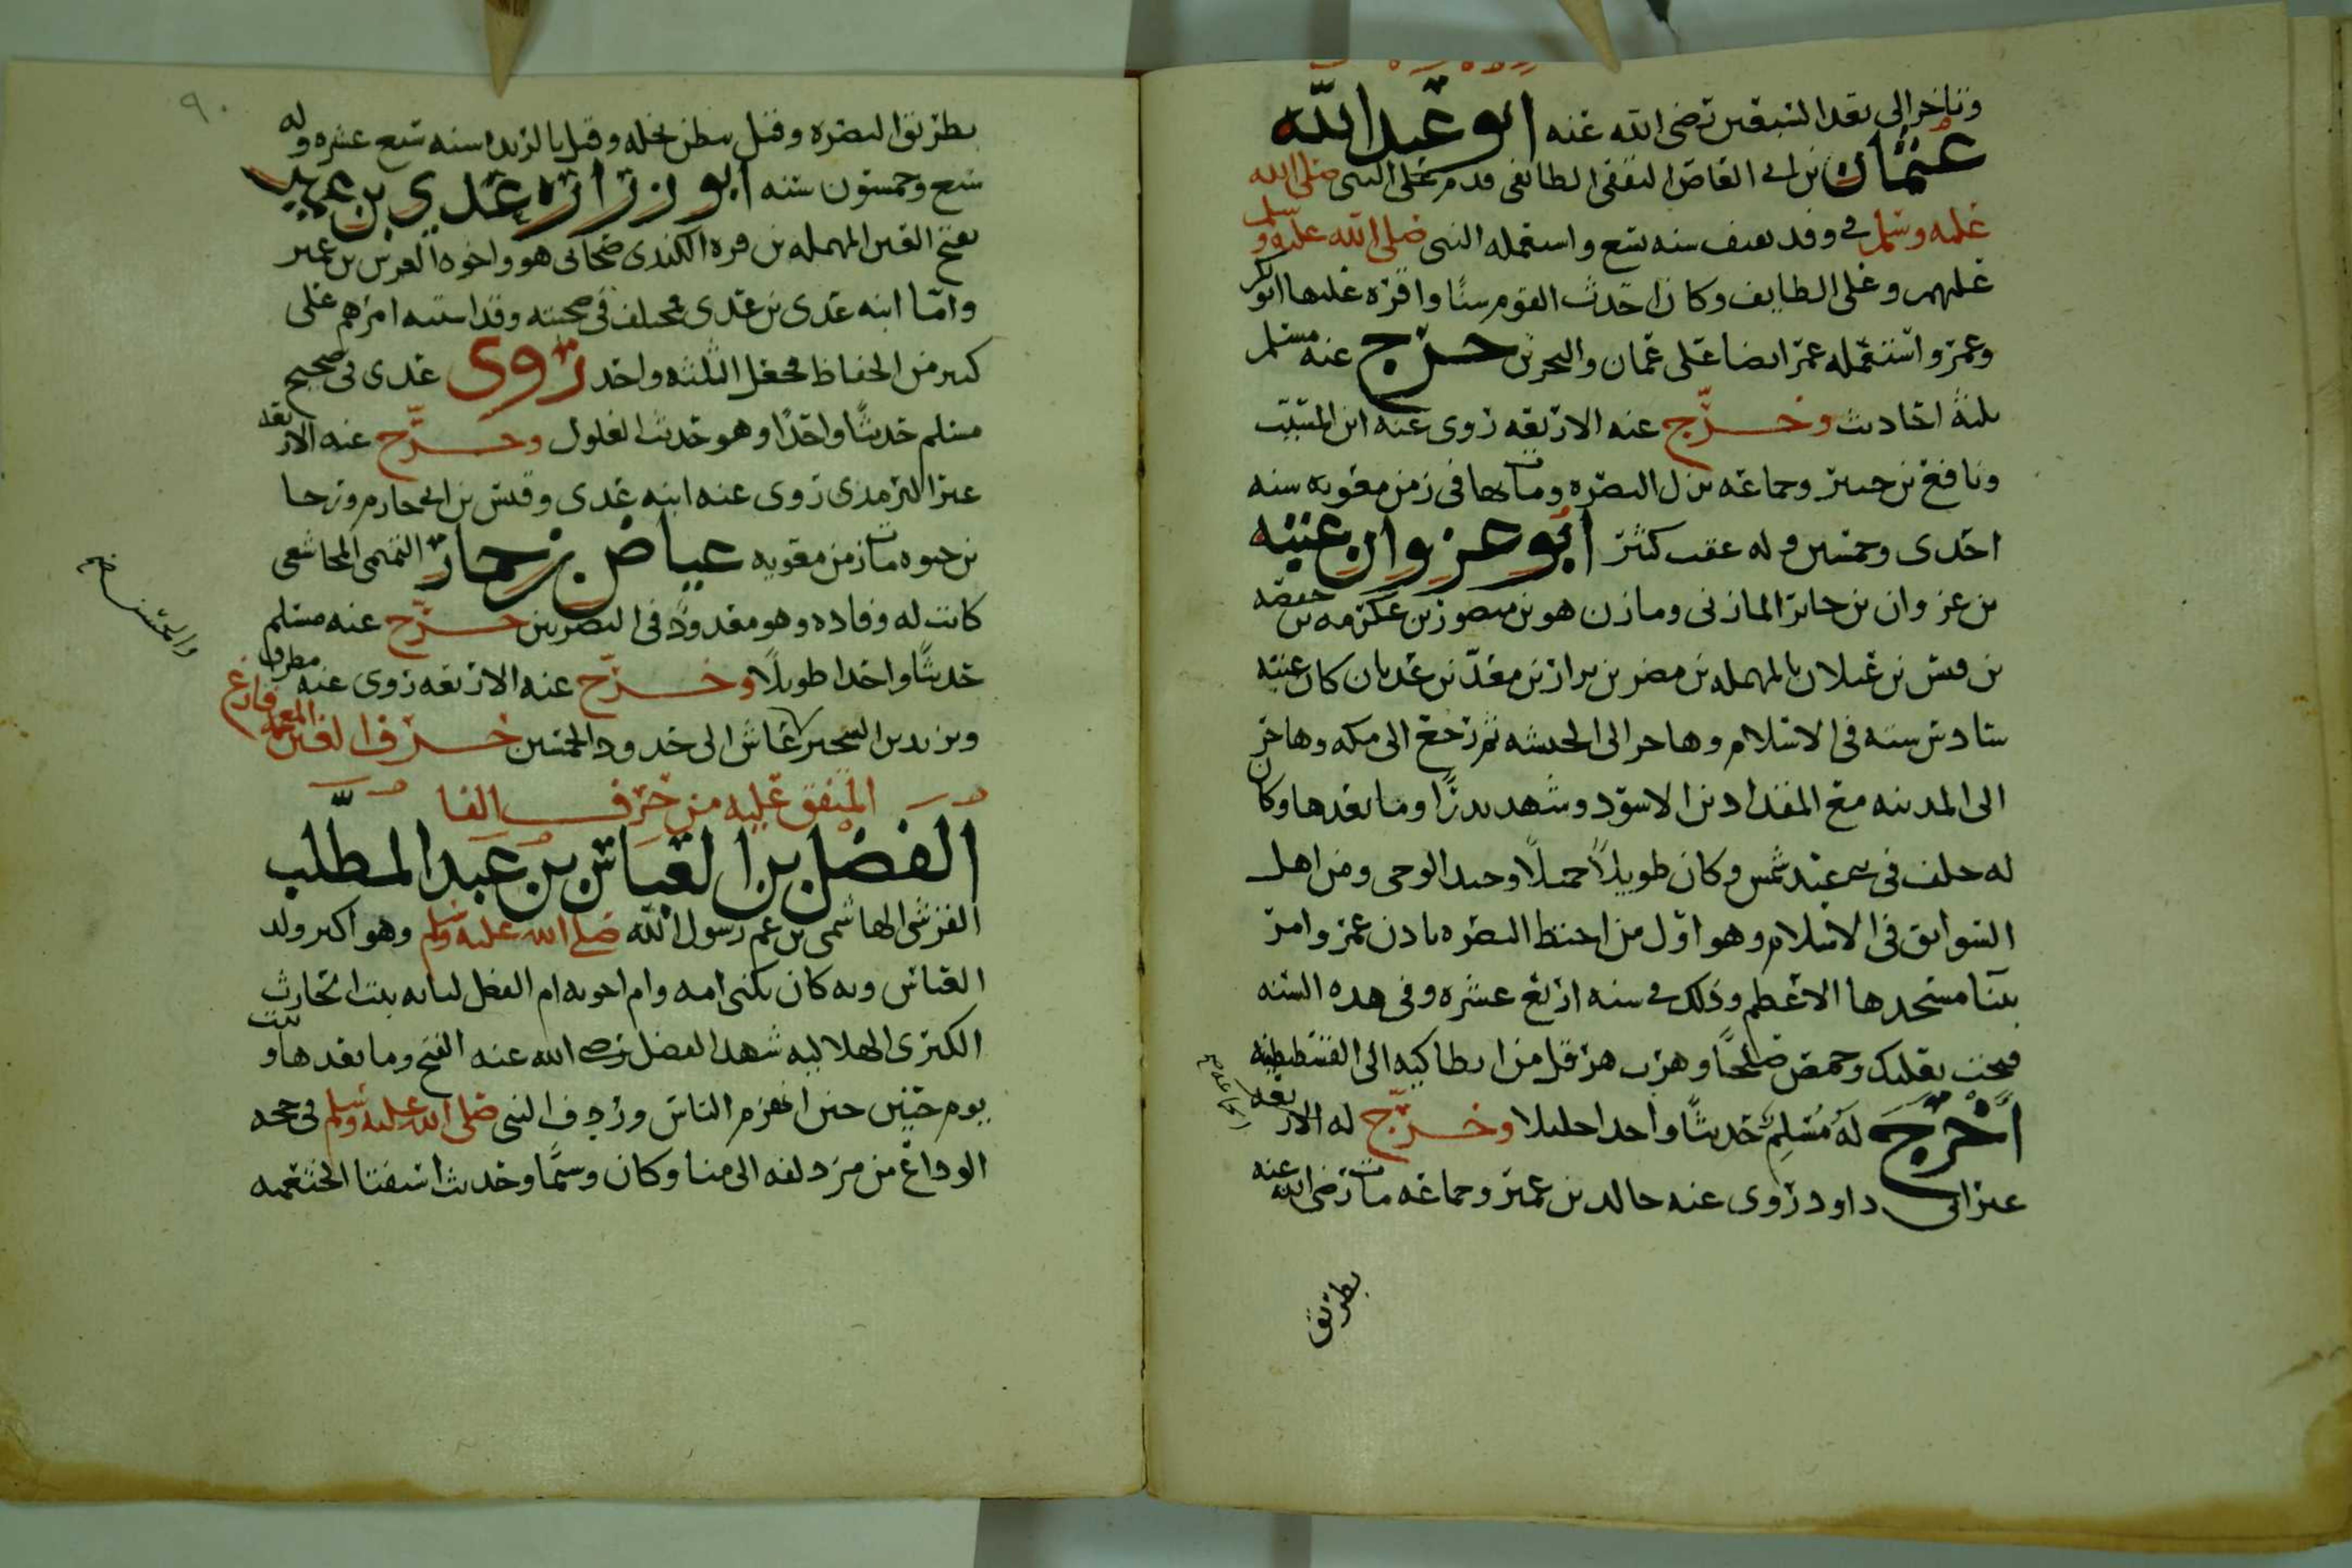 وتاخر الى بعد السبعين رضى الله عنه ابو عبد الله
عثمان بن ابي العاص الثقفى الطائفى قدم على النبى صلى الله
عليه وسلم في وفد ثقيف سنه تسع واستعمله النبى صلى الله عليه وسلم
عليهم وعلى الطايف وكان احدث القوم سنًا واقره عليها ابو بكر
وعمر واستعمله عمر ايضا على عمان والبحرين خرج عنه مسلم
ثلثة احاديث وخرّج عنه الاربعه روى عنه ابن المسيب
ونافع بن جبير وجماعه نزل البصره ومات بها فى زمن معويه سنه
احدى وخمسين وله عقب كثير ابو غزوان عتبه
بن غزوان بن جابر المازنى ومازن هو بن منصور بن عكرمه بن خصفه
بن قيس بن عيلان بالمهمله بن مضر بن نزار بن معدّ بن عدنان كان عتبه
سادس سته فى الاسلام وهاجر الى الحبشه ثم رجع الى مكه وهاجر
الى المدينه مع المقداد بن الاسود وشهد بدرًا وما بعدها وكان
له حلف فى بنى عبد شمس وكان طويلًا جميلًا وحيد الوحى ومن اهل
السوابق فى الاسلام وهو اوّل من اختط البصره باذن عمر وامر
ببنآ مسجدها الاعظم وذلك في سنه اربع عشره وفى هذه السنه
فتحت بعلبك وحمص صلحًا وهرب هرقل من انطاكيه الى القسطنطينيه
اخرج له مسلم حديثًا واحدا جليلا وخرّج له الاربعه
غير ابى داود روى عنه خالد بن عمير وجماعه مات رضى الله عنه
بطريق
٩٠
بطريق البصره وقتل ببطن نخله وقيل بالربذه سنه سبع عشره وله
سبع وخمسون سنه ابو زراره عدي بن عميره
بفتح العين المهمله بن فروه الكندى صحابى هو واخوه العرس بن عمير
وامّا ابنه عدى بن عدى مختلف فى صحبته وقد اشتبه امرهم على
كثير من الحفاظ فجعل الثلثه واحد روى عدى فى صحيح
مسلم حديثًا واحدًا وهو حديث الغلول وخرّج عنه الاربعه
غير الترمذى روى عنه ابنه عدى وقيس بن ابي حازم ورجا
بن حيوه مات زمن معويه عياض بن حمار التميمى المجاشعى
كانت له وفاده وهو معدودٌ فى البصريين خرّج عنه مسلم
حديثًا واحدا طويلًا وخرّج عنه الاربعه روى عنه مطرف
ويزيد بن الشخير عاش الى حدود الخمسين حرف الغين المعجمه فارغ
المتفق عليه من حرف الفا
الفضل بن العباس بن عبد المطلب
القرشى الهاشمى بن عم رسول الله صلى الله عليه وسلم وهو اكبر ولد
العباس وبه كان يكنى امه وام اخوته ام الفضل لبابه بنت الحارث
الكبرى الهلاليه شهد الفضل رضي الله عنه الفتح وما بعدها وثبت
يوم حنين حين انهزم الناس وردف النبى صلى الله عليه وسلم فى حجه
الوداع من مزدلفه الى منا وكان وسيمًا وحديث استفتا الخثعميه